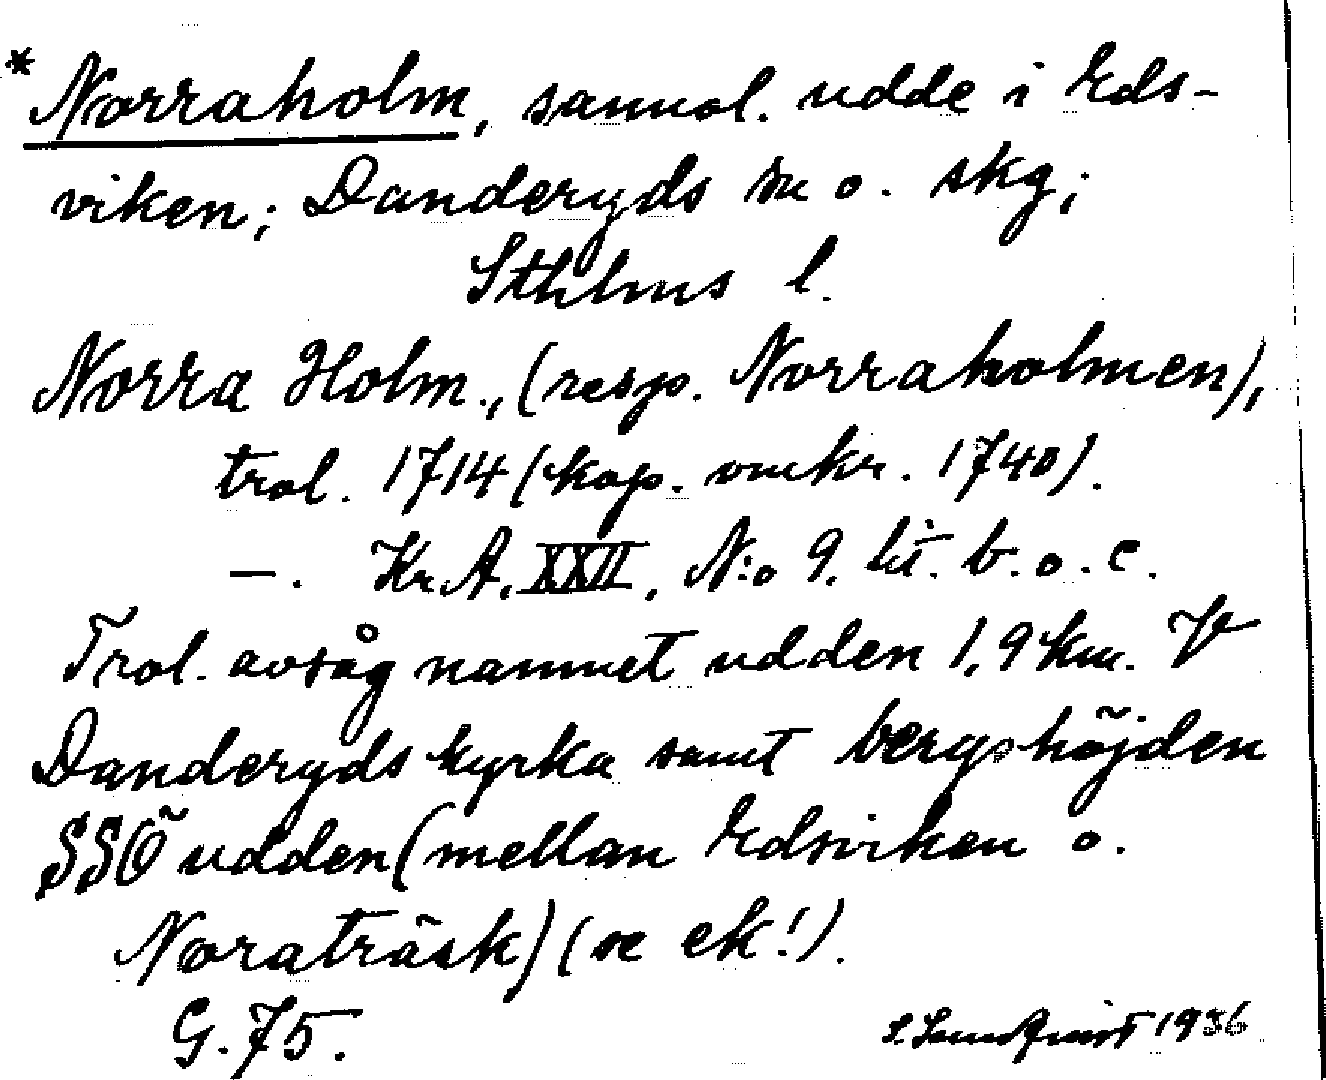 *Norraholm, sannol. udde i Eds-
viken; Danderyds sn o. skg;
Sthlms l.
Norra Holm., (resp. Norraholmen),
trol. 1714 (kop. omkr. 1740).
—. Kr.A. XXII, N:o 9. lit. b. o. c.
Trol. avsåg namnet udden 1,9 km. V
Danderyds kyrka samt bergshöjden
SSÖ udden (mellan Edsviken o.
Noraträsk) (se ek!).
G. 75.
1936